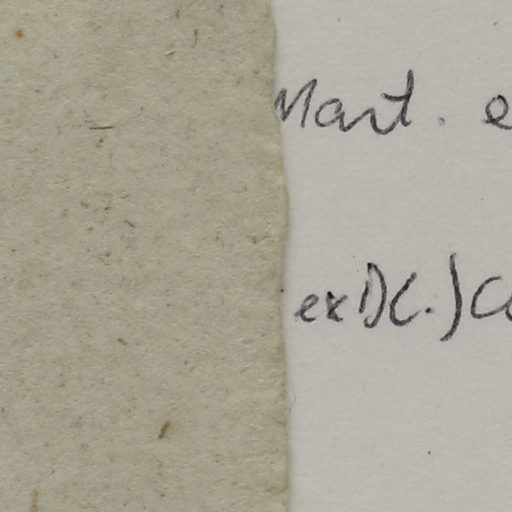 Mart. e
ex DC.) Co